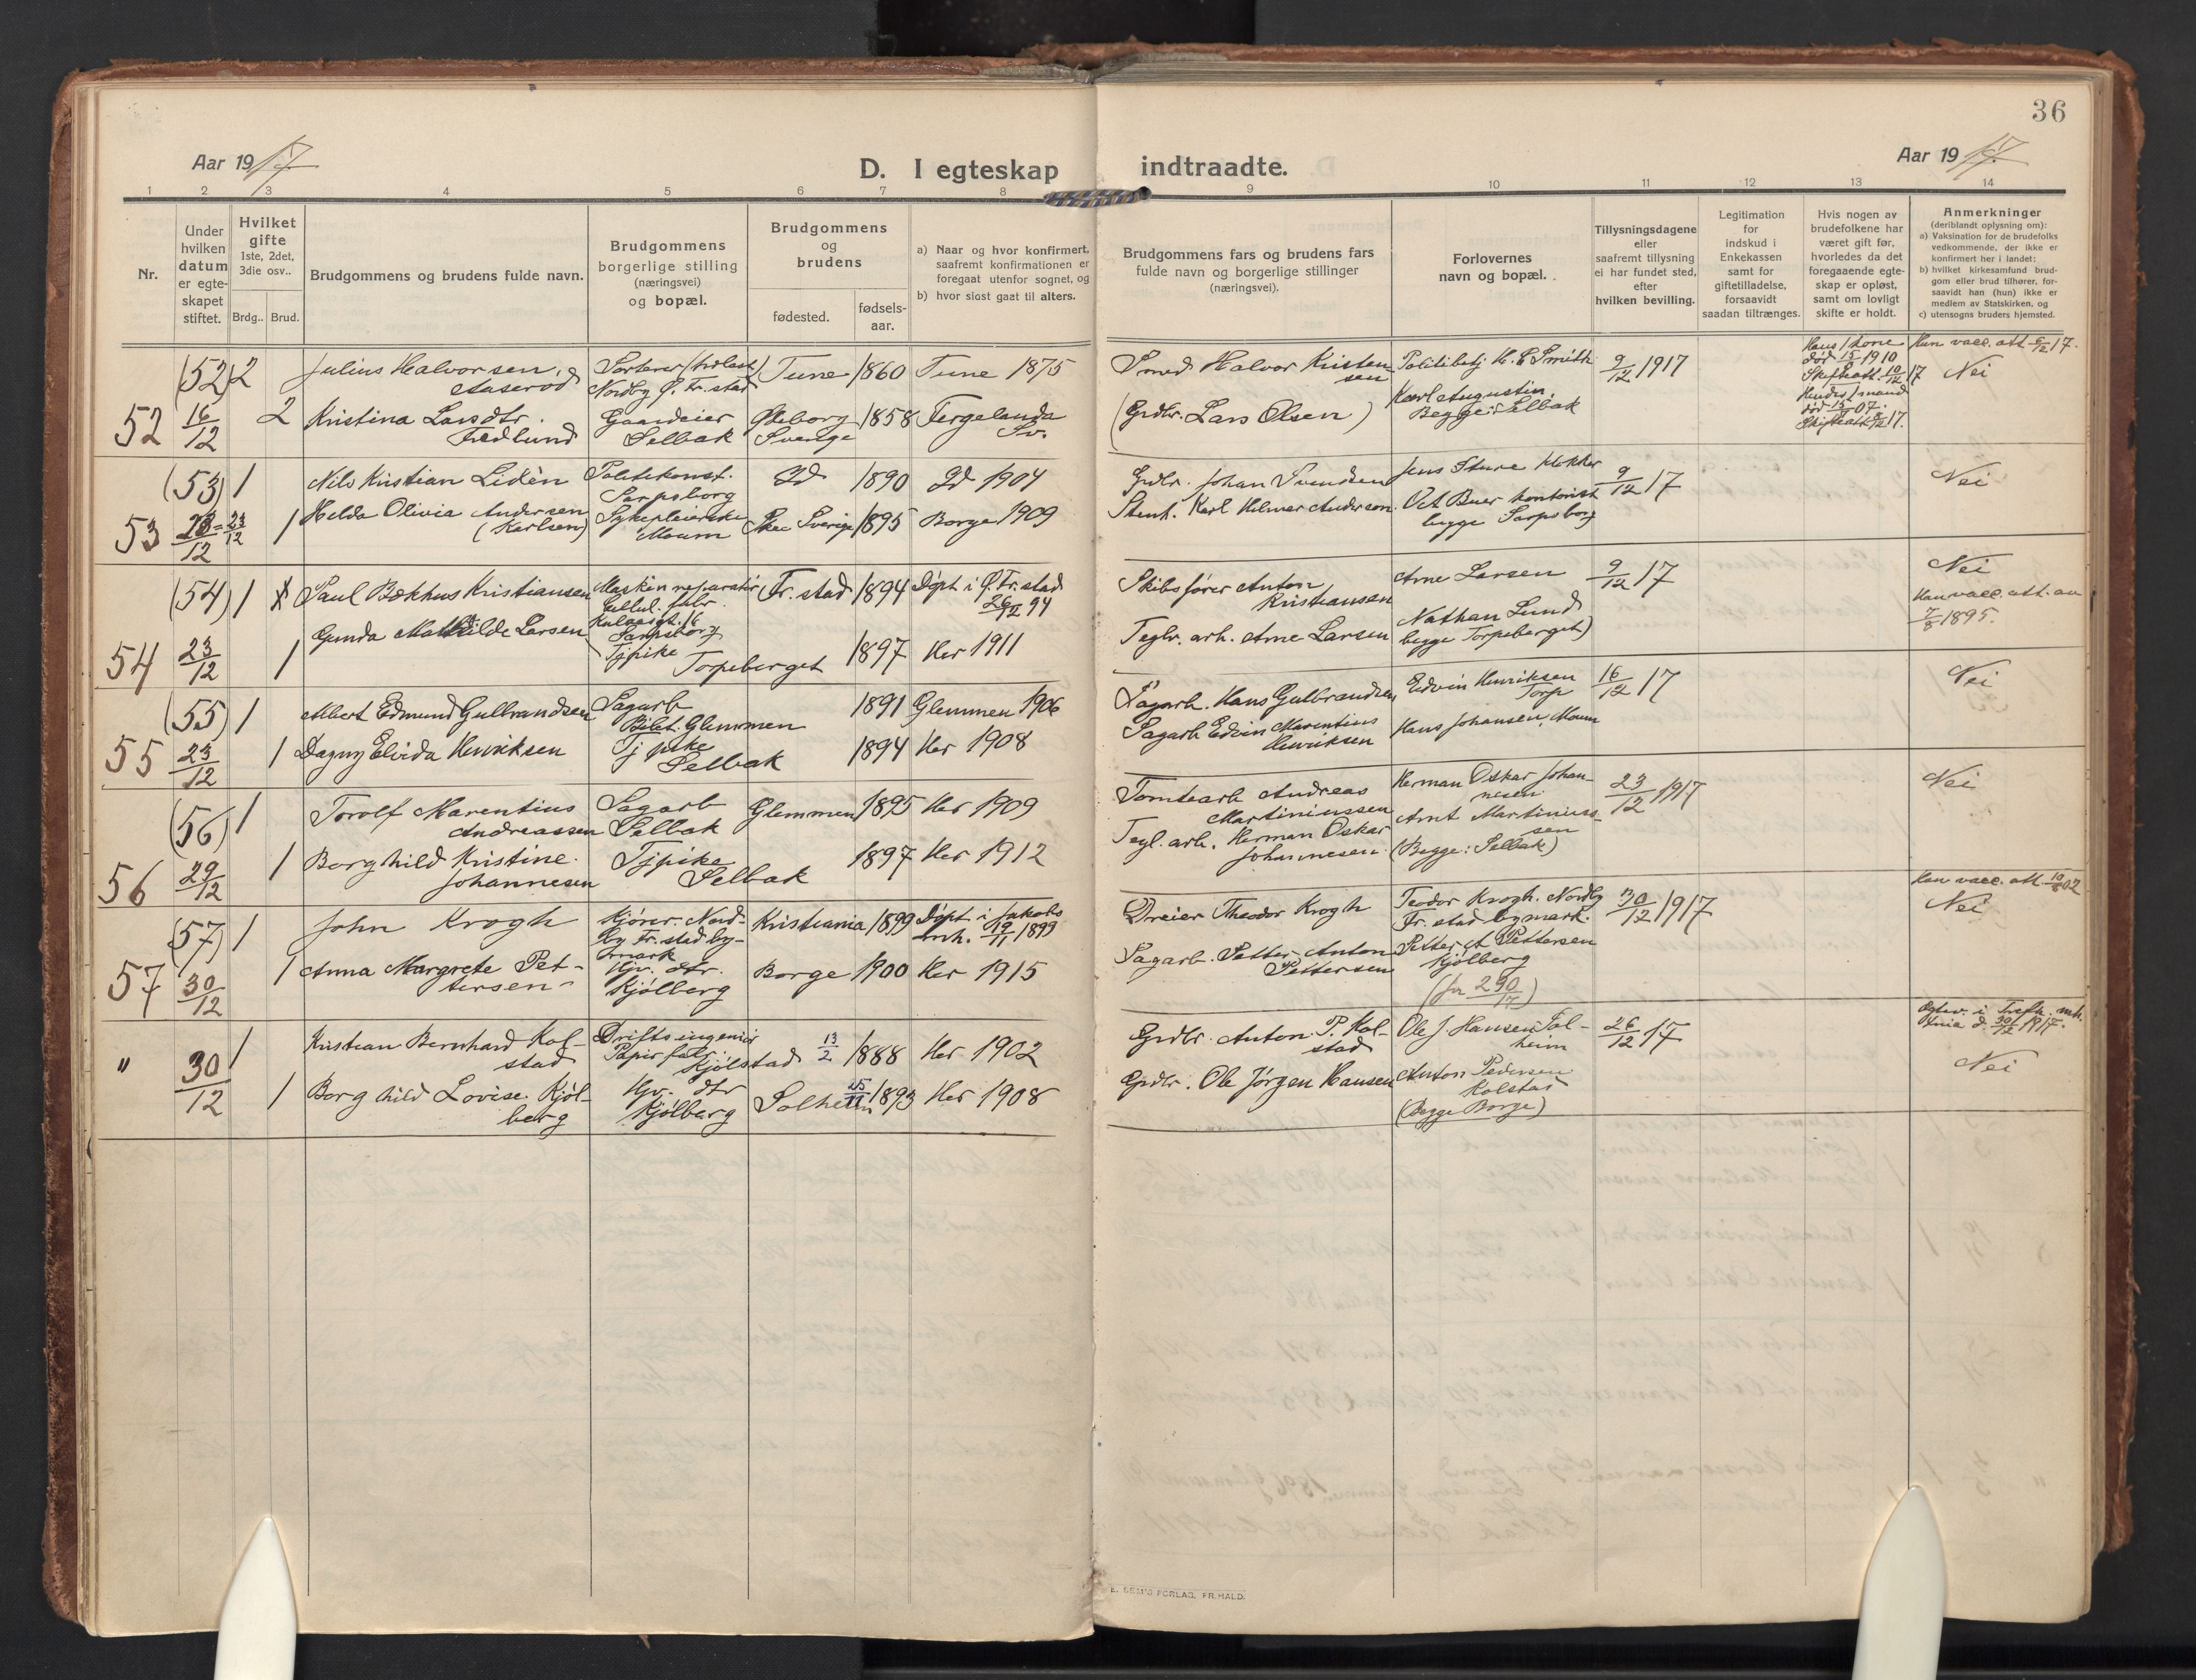 36
Aar 1917.
D. I egteskap indtraadte.
Aar 1917.
1 2 3 4 5 6 7 8 9 10 11 12 13 14
Nr.
Under hvilken datum er egte-skapet stiftet.
Hvilket gifte 1ste, 2det, 3die osv..
Brdg.. Brud.
Brudgommens og brudens fulde navn.
Brudgommens borgerlige stilling (næringsvei) og bopæl.
Brudgommens og brudens
fødested. fødsels-aar.
a) Naar og hvor konfirmert, saafremt konfirmationen er foregaat utenfor sognet, og
b) hvor sidst gaat til alters.
Brudgommens fars og brudens fars fulde navn og borgerlige stillinger (næringsvei).
Forlovernes navn og bopæl.
Tillysningsdagene eller saafremt tillysning ei har fundet sted, efter hvilken bevilling.
Legitimation for indskud i Enkekassen samt for giftetilladelse, forsaavidt saadan tiltrænges.
Hvis nogen av brudefolkene har været gift før, hvorledes da det foregaaende egte-skap er opløst, samt om lovligt skifte er holdt.
Anmerkninger
(deriblandt oplysning om):
a) Vaksination for de brudefolks vedkommende, der ikke er konfirmert her i landet;
b) hvilket kirkesamfund brud-gom eller brud tilhører, for-saavidt han (hun) ikke er medlem av Statskirken, og
c) utensogns bruders hjemsted.
(52) 2 Julius Halvorsen,
Nordby Ø. Fr.stad Tune 1860 Tune 1875
Smed Halvor Kristensen
9/12 1917
Hans 1 kone død 15/5 1910
Skifteatt. 10/12 17
Nei
52 16/12 2 Kristina Larsdtr.
Gaardeier Selbak
Sverige 1858 Fergelanda Sv.
(Grdbr. Lars Olsen)
Karl Augustin. Begge: Selbak
(53) 1 Nils Kristian Lidèn
Politikonst. Sarpsborg Id 1890 Id 1904
Grdbr. Johan Svendsen
Jens Sture klokker
9/12 17
Nei
53 23/12 1 Hilda Olivia Andersen (Karlsen)
Sykepleierske Moum
Sverige 1895 Borge 1909
Stenh. Karl Hilmer Anderson.
Oct Buer kontorist begge Sarpsborg
(54) 1 Paul Bækhus Kristiansen
Maskinreparatør
Sarpsborg
Fr.stad 1894 Døpt i Ø. Fr.stad
Skibsfører Anton Kristiansen
Arne Larsen
9/12 17
Nei
Han vacc. att. av 7/8 1895.
54 23/12 1 Gunda Mathilde Larsen
Tjpike Torpeberget 1897 Her 1911
Teglv. arb. Arne Larsen
Nathan Lund
begge Torpeberget)
(55) 1 Albert Edmund Gulbrandsen
Sagarb Glemmen 1891 Glemmen 1906
Sagarb. Hans Gulbrandsen
Edvin Henriksen Torp
16/12 17
Nei
55 23/12 1 Dagny Elvida Henriksen
Tjpike Selbak 1894 Her 1908
Sagarb Edvin Marentius Henriksen
Hans Johansen, Moum
(56) 1 Torolf Marentius Andreassen
Sagarb Selbak Glemmen 1895 Her 1909
Tomtearb Andreas Martiniussen
Herman Oskar Johannesen.
23/12 1917
Nei
56 29/12 1 Borghild Kristine Johannesen
Tjpike Selbak 1897 Her 1912
Tegl. arb. Herman Oskar Johannesen.
Arnt Martiniussen
(Begge: Selbak)
(57) 1 John Krogh
Kjører. Nordby Fr.stad bymark
Kristiania 1899 Døpt i Jakobs mh. 19/11 1899
Dreier Theodor Krogh
Teodor Krogh. Nordby Fr.stad bymark.
30/12 1917
Nei
57 30/12 1 Anna Margrete Pettersen
Hjv. dtr. Kjølberg Borge 1900 Her 1915
Sagarb. Petter Anton Pettersen
Petter A Pettersen Kjølberg
(jnr 290/17)
" 30/12 1 Kristian Bernhard Kolstad
Driftsingeniør Papirfabr. Kjølstad 13/2 1888 Her 1902
Grdbr. Anton P. Kolstad
Ole J. Hansen Solheim
26/12 17
Nei
1 Borghild Lovise Kjølberg
Hjv. dtr Kjølberg Solheim 1893 Her 1908
Grdbr. Ole Jørgen Hansen
Anton Pedersen Kolstad
(Begge Borge)
E. SEM'S FORLAG, FR.HALD.